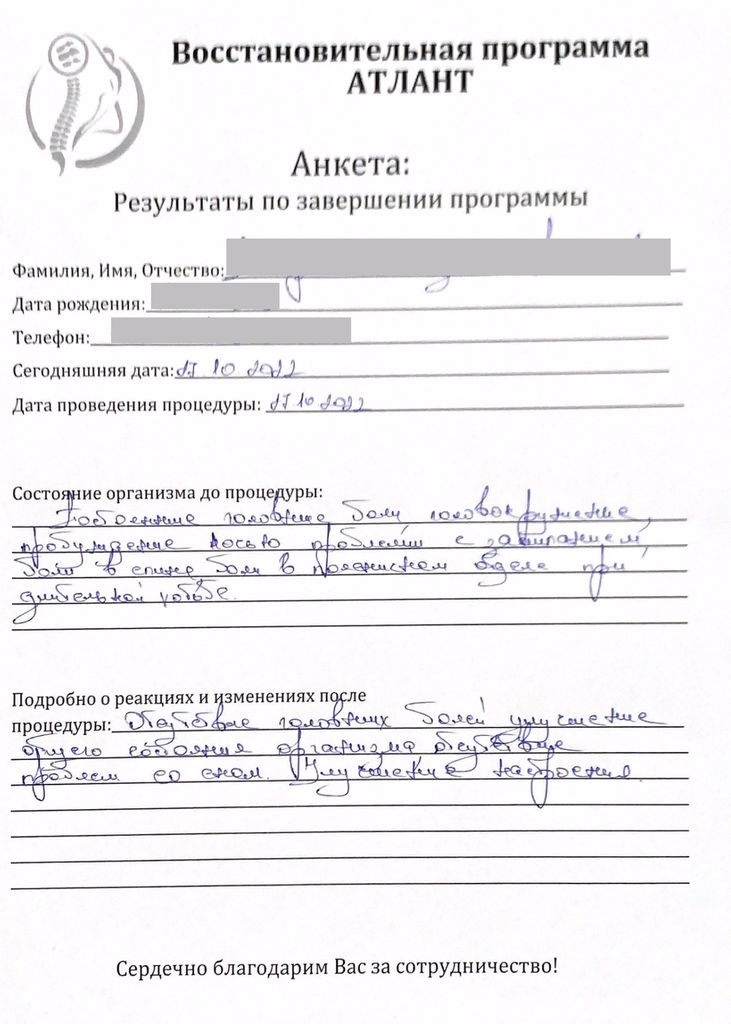 Восстановительная программа
АТЛАНТ
Анкета:
Результаты по завершении программы
Фамилия, Имя, Отчество:
Дата рождения:
Телефон:
Сегодняшняя дата: 27 10 2022
Дата проведения процедуры: 27 10 2022
Состояние организма до процедуры:
головные боли головокружение,
пробуждение ночью проблемы с засыпанием,
боли в спине боли в поясничном отделе при
длительной ходьбе.
Подробно о реакциях и изменениях после
процедуры: Отсутствие головных болей улучшение
общего состояния организма отсутствие
проблем со сном. Улучшение настроения.
Сердечно благодарим Вас за сотрудничество!